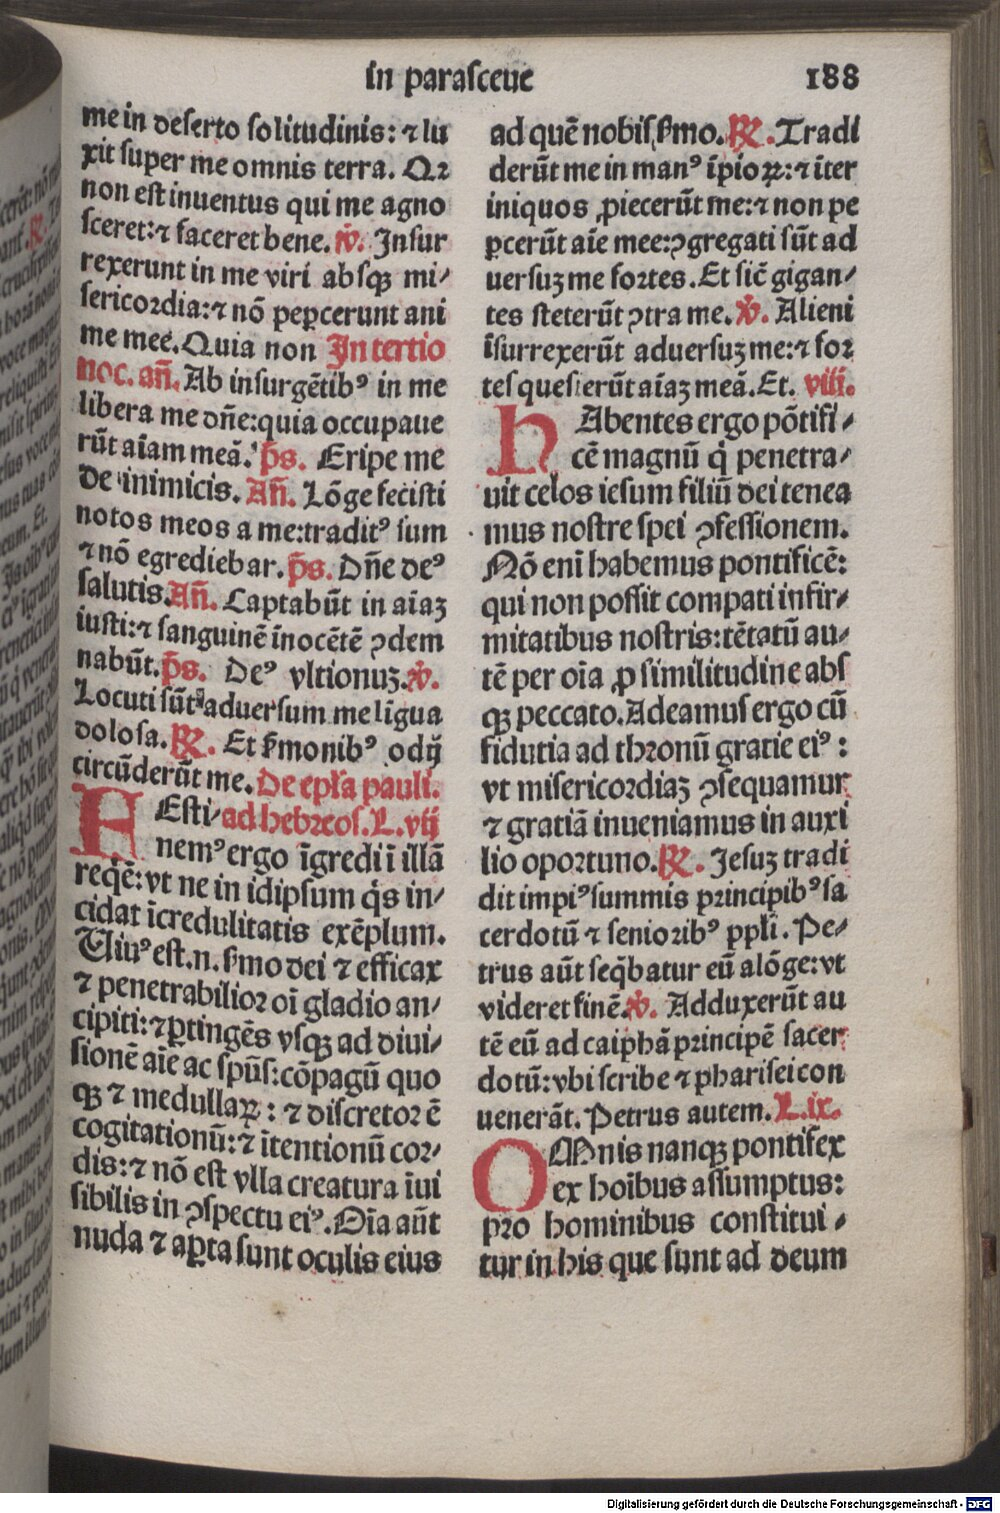 in parasceue 188
me in deserto solitudinis: ⁊ lu
xit super me omnis terra. Qꝛ
non est inuentus qui me agno
sceret: ⁊ faceret bene. ℣. Insur
rexerunt in me viri absqꝫ mi⸗
sericordia: ⁊ nō peꝑcerunt ani
me meė. Quia non In tertio
noc. añ. Ab insurgētibꝰ in me
libera me dñe: quia occupaue
rūt aīam meā. p̄s. Eripe me
de inimicis. Añ. Lōge fecisti
notos meos a me: traditꝰ sum
⁊ nō egrediebar. p̄s. Dñe deꝰ
salutis. Añ. Captabūt in aīaꝫ
iusti: ⁊ sanguinē īnocētē ꝯdem
nabūt. p̄s. Deꝰ vltionuꝫ. ℣.
Locuti sūt aduersum me līgua
dolosa. ℟. Et s̄monibꝰ odij
circūderūt me. De ep̄la pauli.
FEsti⸗ ad hebreos. L. vij
nemꝰ ergo īgredi ī illā
reqē: vt ne in idipsum q̇s in⸗
cidat īcredulitatis exēplum.
Uiuꝰ est .n. s̄mo dei ⁊ efficax
⁊ penetrabilior oī gladio an⸗
cipiti: ⁊ ꝑtingēs vsqꝫ ad diui⸗
sionē aīe ac spūs: cōpagū quo
qꝫ ⁊ medullaꝝ: ⁊ discretor ē
cogitationū: ⁊ ītentionū cor⸗
dis: ⁊ nō est vlla creatura īui
sibilis in ꝯspectu eiꝰ. Oīa aūt
nuda ⁊ aꝑta sunt oculis eius
ad quē nobis s̄mo. ℟. Tradi
derūt me in manꝰ īpioꝝ: ⁊ īter
iniquos ꝓiecerūt me: ⁊ non pe
ꝑcerūt aīe mee: ꝯgregati sūt ad
uersuꝫ me fortes. Et sic̄ gigan⸗
tes steterūt ꝯtra me. ℣. Alieni
īsurrexerūt aduersuꝫ me: ⁊ for
tes quesierūt aīaꝫ meā. Et. viij.
HAbentes ergo pōtifi⸗
cē magnū q̇ penetra⸗
uit celos iesum filiū dei tenea
mus nostre spei ꝯfessionem.
Nō enī habemus pontificē:
qui non possit compati infir⸗
mitatibus nostris: tētatū au⸗
tē per oīa ꝓ similitudine abs
qꝫ peccato. Adeamus ergo cū
fidutia ad thronū gratie eiꝰ:
vt misericordiaꝫ ꝯsequamur
⁊ gratiā inueniamus in auxi
lio oportuno. ℟. Jesuꝫ tradi
dit impiꝰ summis principibꝰ sa
cerdotū ⁊ senioribꝰ ppl̄i. Pe⸗
trus aūt seq̄batur eū alōge: vt
videret finē. ℣. Adduxerūt au
tē eū ad caiphā principē sacer
dotū: vbi scribe ⁊ pharisei con
uenerāt. Petrus autem. L. ix.
OMnis nanqꝫ pontifex
ex hoībus assumptus:
pro hominibus constitui⸗
tur in his que sunt ad deum
Digitalisierung gefördert durch die Deutsche Forschungsgemeinschaft - DFG